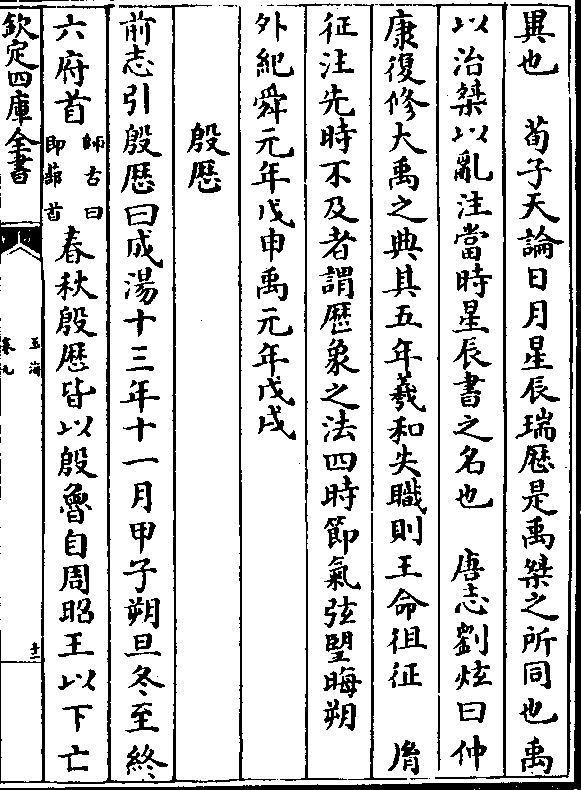 異也　荀子天論日月星辰瑞厯是禹桀之所同也禹
以治桀以亂注當時星辰書之名也　唐志劉炫曰仲
康復修大禹之典其五年羲和失職則王命徂征　胤
征注先時不及者謂厯象之法四時節氣弦朢晦朔
外紀舜元年戊申禹元年戊戌
殷厯
前志引殷厯曰成湯十三年十一月甲子朔旦冬至終
六府首師古曰即蔀首春秋殷厯皆以殷魯自周昭王以下亡
欽定四庫全書
玉海
卷九
十二